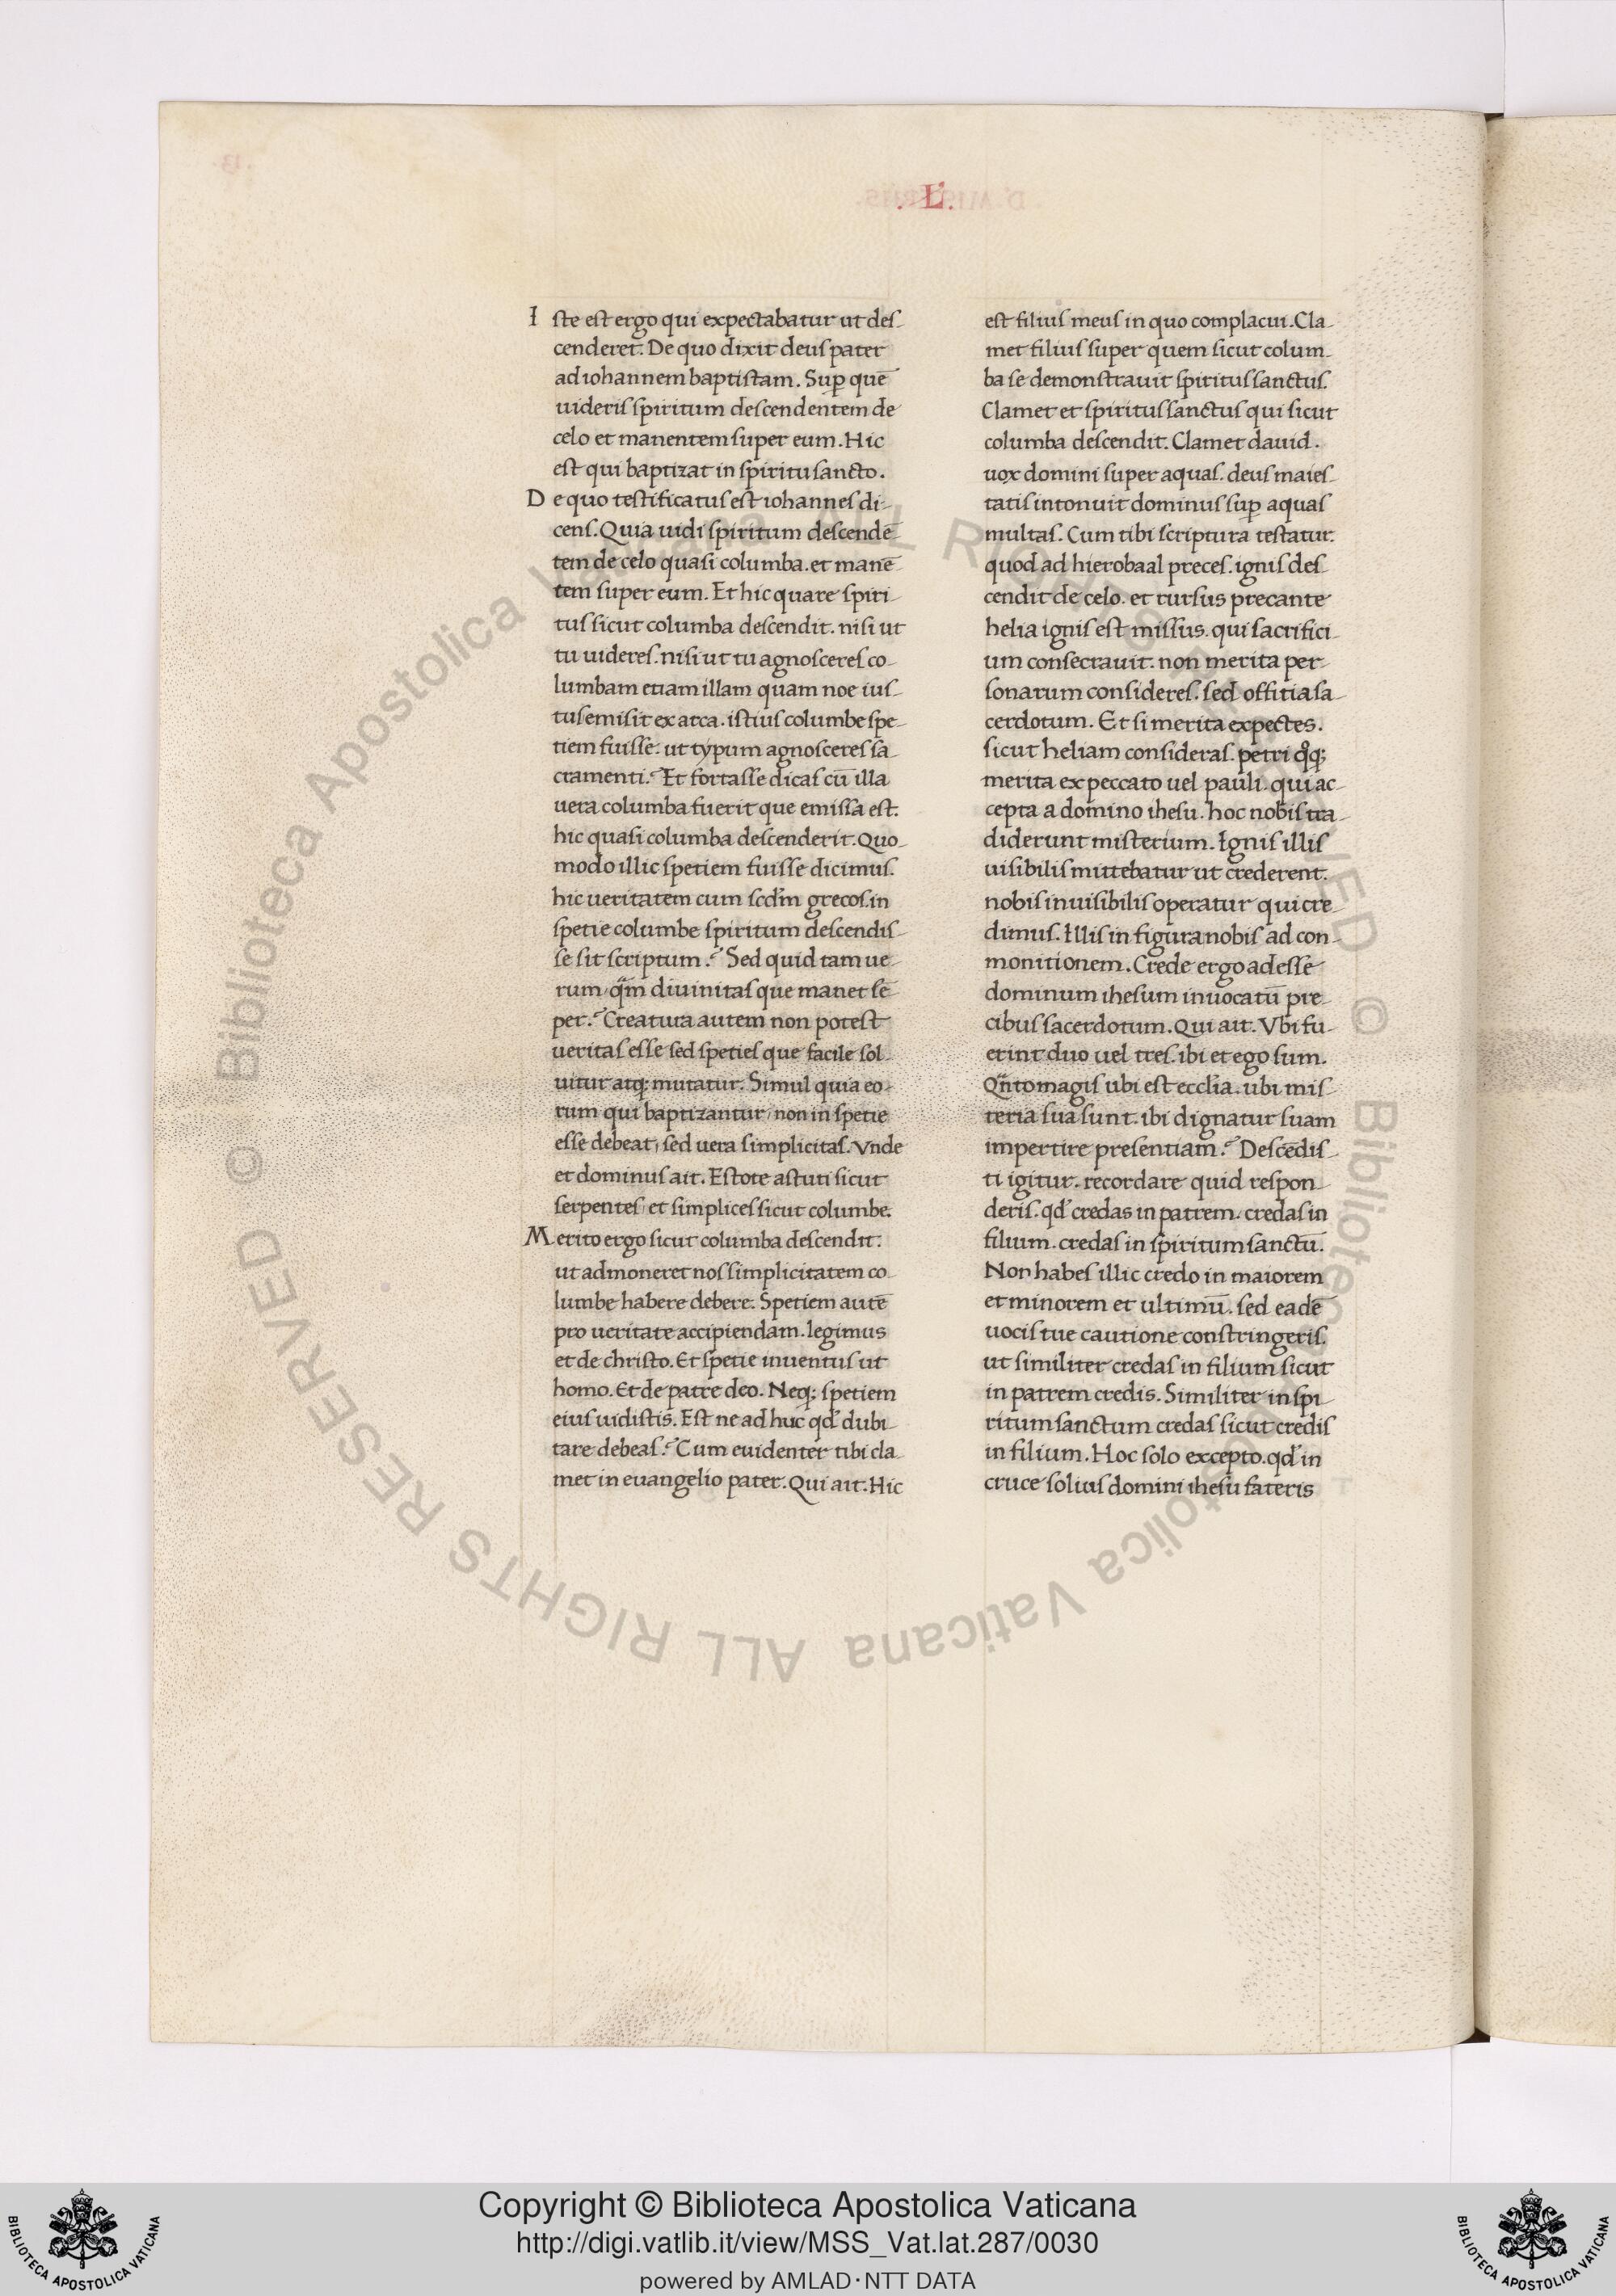 .L.
Iste est ergo qui expectabatur ut des-
cenderet. De quo dixit deus pater
ad iohannem baptistam. Sup̱ quē
uideris spiritum descendentem de
celo et manentem super eum. Hic
est qui baptizat in spiritu sancto.
De quo testificatus est iohannes di-
cens. Quia uidi spiritum descendē-
tem de celo quasi columba. et manē-
tem super eum. Et hic quare spiri-
tus sicut columba descendit. nisi ut
tu uideres. nisi ut tu agnosceres co-
lumbam etiam illam quam noe ius-
tus emisit ex arca. istius columbe spe-
tiem fuisse. ut typum agnosceres sa-
cramenti. Et fortasse dicas cū illa
uera columba fuerit que emissa est.
hic quasi columba descenderit. Quo-
modo illic spetiem fuisse dicimus.
hic ueritatem cum scd̄m grecos. in
spetie columbe spiritum descendis-
se sit scriptum? Sed quid tam ue-
rum q̄m diuinitas que manet sē-
per? Creatura autem non potest
ueritas esse sed speties que facile sol-
uitur atq; mutatur. Simul quia eo-
rum qui baptizantur, non in spetie
esse debeat, sed uera simplicitas. Vnde
et dominus ait. Estote astuti sicut
serpentes, et simplices sicut columbe.
Merito ergo sicut columba descendit.
ut admoneret nos simplicitatem co-
lumbe habere debere. Spetiem autē
pro ueritate accipiendam. legimus
et de christo. Et spetie inuentus ut
homo. Et de patre deo. Neq; spetiem
eius uidistis. Est ne ad huc qd̓ dubi-
tare debeas? Cum euidenter tibi cla-
met in euangelio pater. Qui ait. Hic
est filius meus in quo complacui. Cla-
met filius super quem sicut colum-
ba se demonstrauit spiritus sanctus.
Clamet et spiritus sanctus qui sicut
columba descendit. Clamet dauid.
uox domini super aquas. deus maies-
tatis intonuit dominus sup̱ aquas
multas. Cum tibi scriptura testatur.
quod ad hierobaal preces. ignis des-
cendit de celo. et rursus precante
helia ignis est missus. qui sacrifici-
um consecrauit. non merita per-
sonarum consideres. sed offitia sa-
cerdotum. Et si merita expectes.
sicut heliam consideras. petri qͦq;
merita ex peccato uel pauli. qui ac-
cepta a domino ihesu. hoc nobis tra-
diderunt misterium. Ignis illis
uisibilis mittebatur ut crederent.
nobis inuisibilis operatur qui cre-
dimus. Illis in figura nobis ad con-
monitionem. Crede ergo adesse
dominum ihesum inuocatū pre-
cibus sacerdotum. Qui ait. Vbi fu-
erint duo uel tres. ibi et ego sum.
Qn̄to magis ubi est eccl̓ia. ubi mis-
teria sua sunt. ibi dignatur suam
impertire presentiam? Descēdis-
ti igitur. recordare quid respon-
deris. qd̓ credas in patrem. credas in
filium. credas in spiritum sanctū.
Non habes illic credo in maiorem
et minorem et ultimū. sed eadē
uocis tue cautione constringeris.
ut similiter credas in filium sicut
in patrem credis. Similiter in spi-
ritum sanctum credas sicut credis
in filium. Hoc solo excepto. qd̓ in
cruce solius domini ihesu fateris
© Biblioteca Apostolica Vaticana ALL RIGHTS RESERVED
© Biblioteca Apostolica Vaticana ALL RIGHTS RESERVED
Copyright © Biblioteca Apostolica Vaticana
http://digi.vatlib.it/view/MSS_Vat.lat.287/0030
powered by AMLAD·NTT DATA
BIBLIOTECA APOSTOLICA VATICANA
BIBLIOTECA APOSTOLICA VATICANA